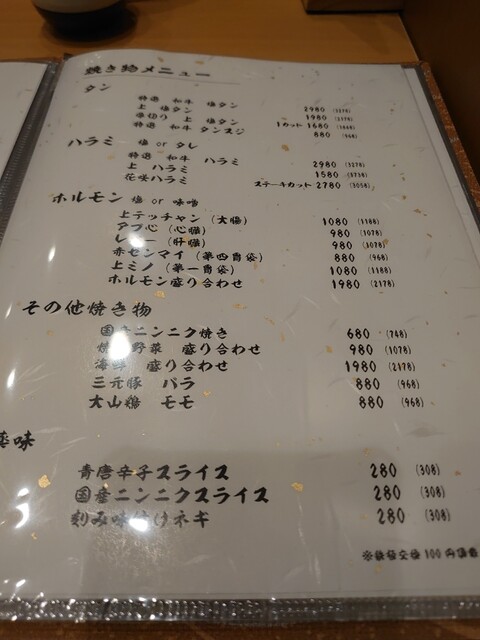 焼き物メニュー
タン
特選 和牛 塩タン 2980 (3278)
上 塩タン 1980 (2178)
厚切り 上 塩タン 1カット 1680
特選 和牛 タンスジ 880 (968)
ハラミ 塩 or タレ
特選 和牛 ハラミ 2980 (3278)
上 ハラミ 1580
花咲ハラミ ステーキカット 2780 (3058)
ホルモン 塩 or 味噌
上テッチャン (大腸) 1080 (1188)
アブ心 (心臓) 980 (1078)
レバー (肝臓) 980 (1078)
赤センマイ (第四胃袋) 880 (968)
上ミノ (第一胃袋) 1080 (1188)
ホルモン盛り合わせ 1980 (2178)
その他焼き物
国産ニンニク焼き 680 (748)
焼き野菜 盛り合わせ 980 (1078)
海鮮 盛り合わせ 1980 (2178)
三元豚 バラ 880 (968)
大山鶏 モモ 880 (968)
薬味
青唐辛子スライス 280 (308)
国産ニンニクスライス 280 (308)
刻み味付けネギ 280 (308)
※鉄板交換100円頂